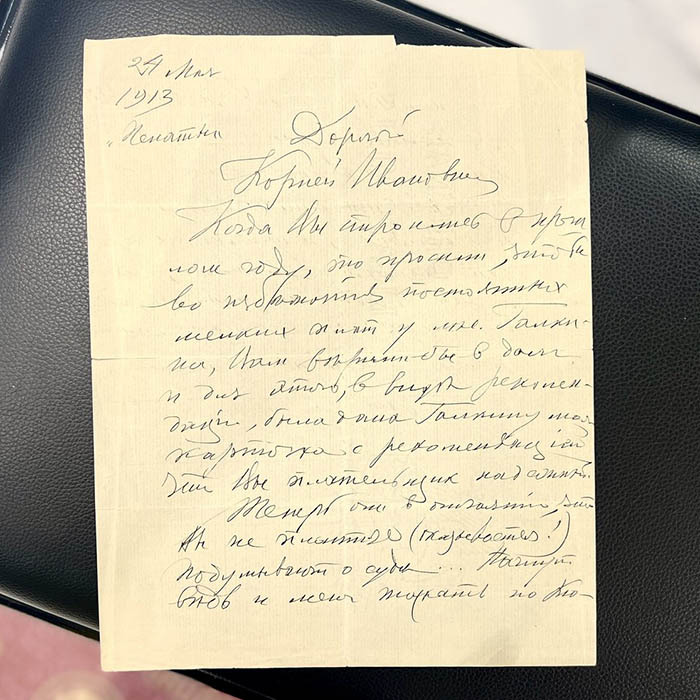 24 Мая
1913
"Пенаты"
Дорогой
Корней Иванович
Когда Вы строились в прош
лом году, то просили, чтобы
во избежание постоянных
мелких плат у лав. Галки-
на, Вам верили бы в долг.
и для этого, в виде рекомен-
дации, была дана Галкину моя
карточка с рекомендацией
что Вы плательщик надежный.
Теперь они в отчаянии, что
Вы не платите (оказывается!)
подумывают о суде ... Начнут
и меня таскать по